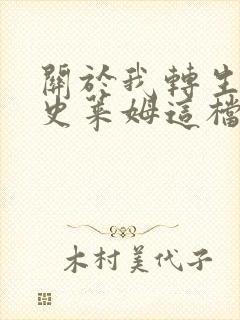 關於我轉生
史萊姆這檔
木村美代子